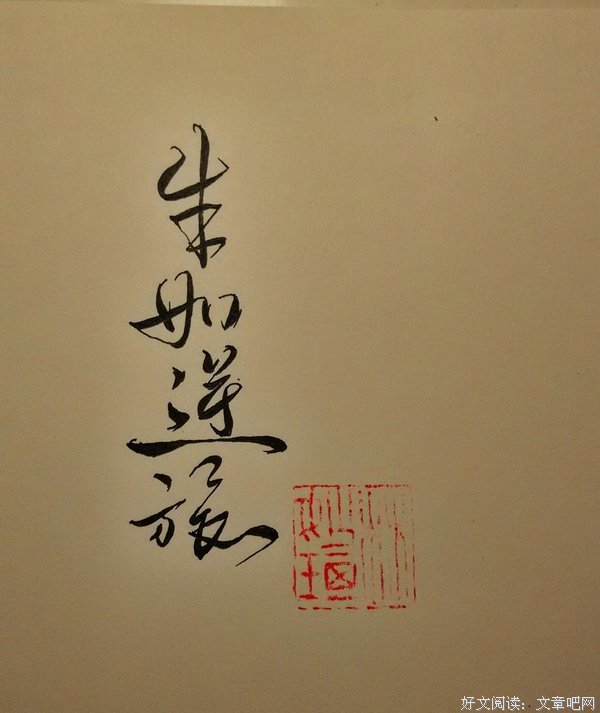 朱如逆旅
好文阅读：文章吧网